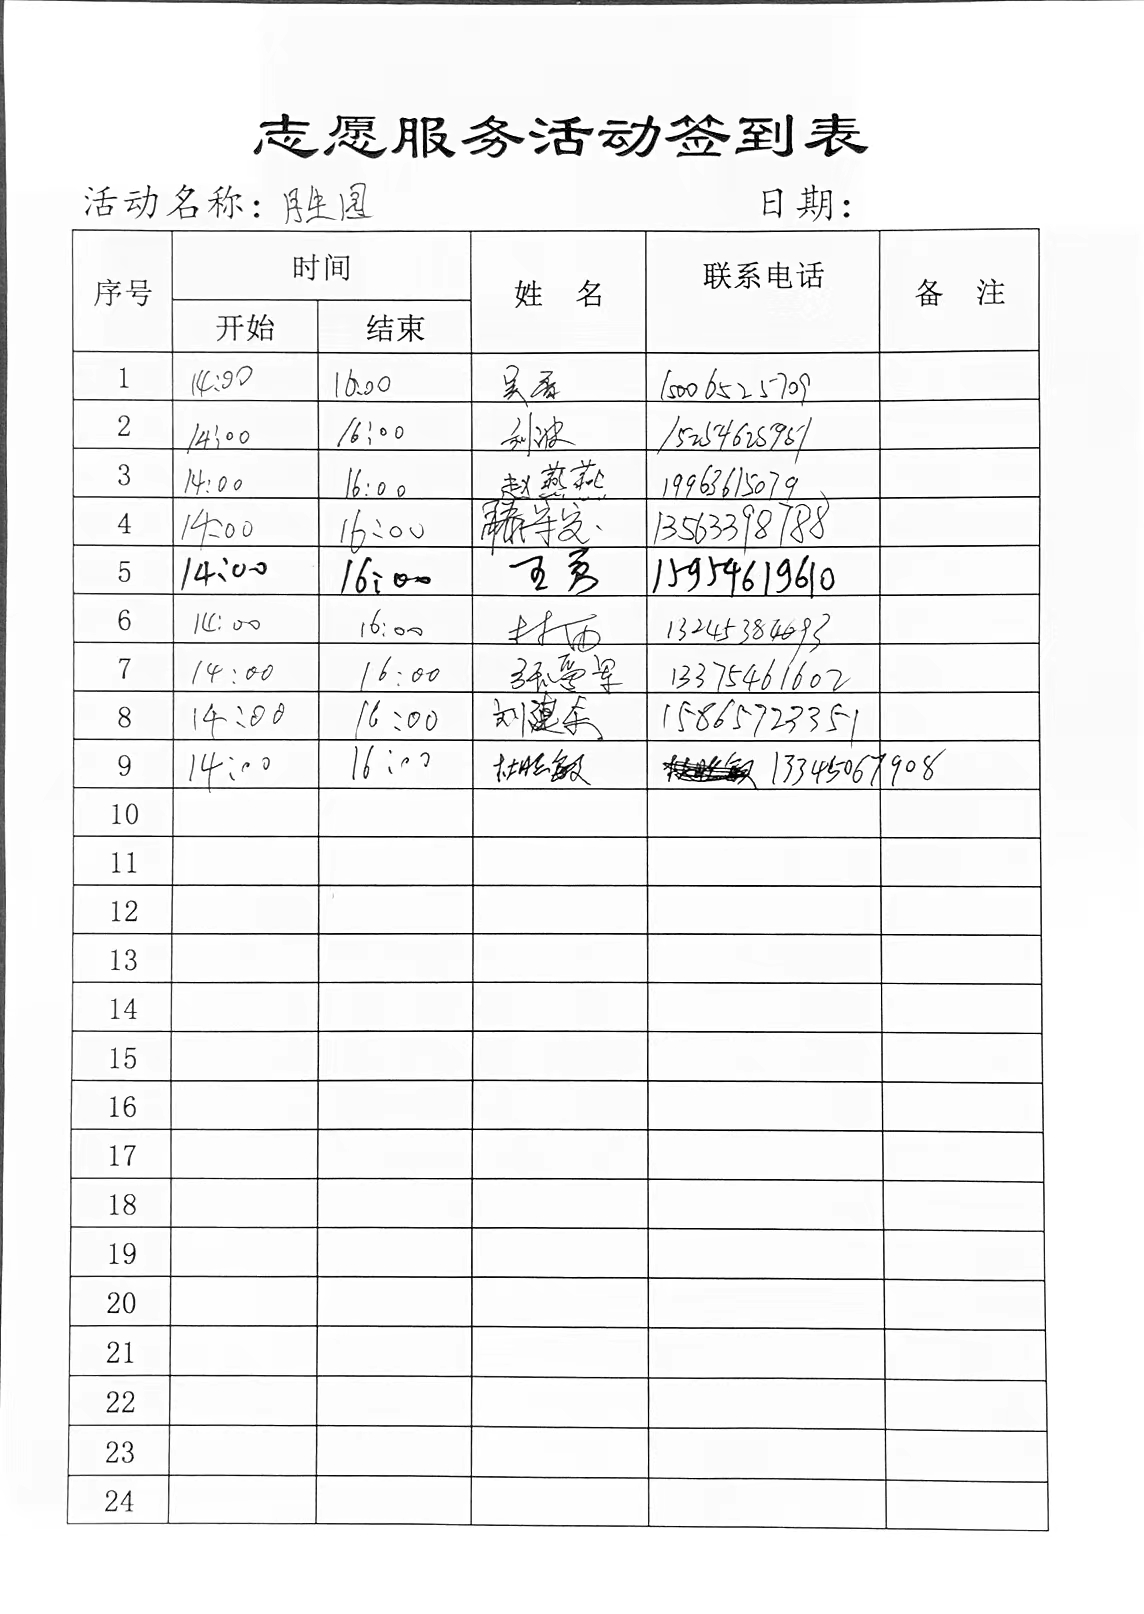 志愿服务活动签到表
活动名称: 胜园 日期:
序号 时间 姓 名 联系电话 备 注
开始 结束
1 14:00 16:00 15006525709
2 14:00 16:00 利波 15254625951
3 14:00 16:00 赵燕燕 19963615079
4 14:00 16:00 13563398788
5 14:00 16:00 王勇 15954619610
6 14:00 16:00 林丽
7 14:00 16:00 13375461602
8 14:00 16:00 15865723351
9 14:00 16:00 杜胜敏 13345067908
10
11
12
13
14
15
16
17
18
19
20
21
22
23
24